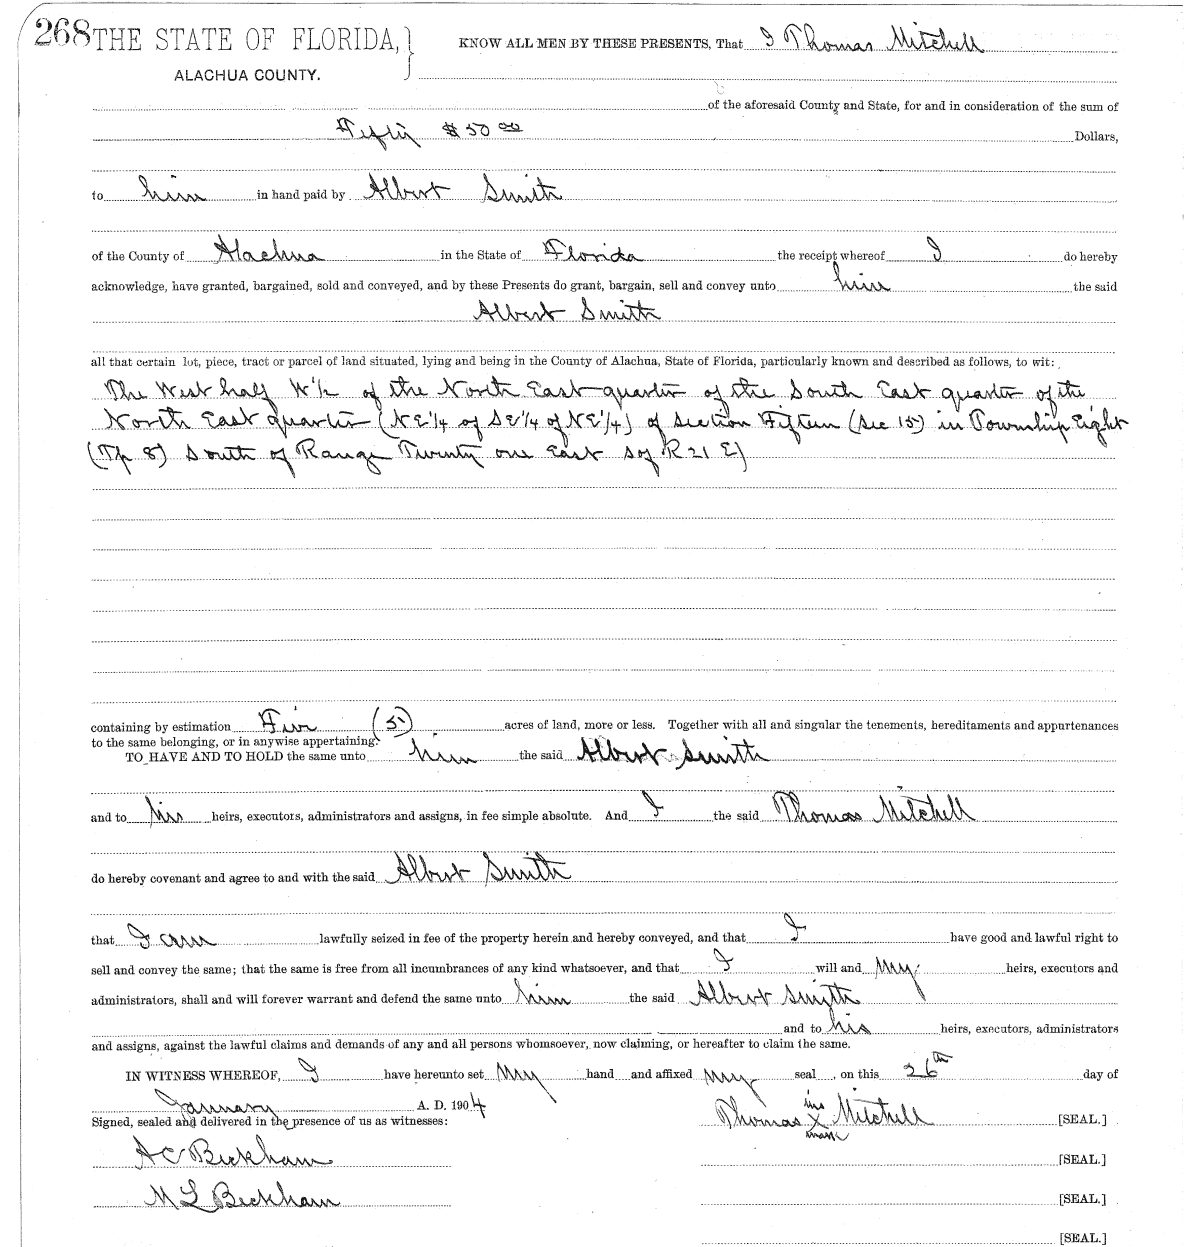 268 THE STATE OF FLORIDA, } KNOW ALL MEN BY THESE PRESENTS, That I Thomas Mitchell
ALACHUA COUNTY.
of the aforesaid County and State, for and in consideration of the sum of
Fifty $50 00 Dollars,
to him in hand paid by Albert Smith
of the County of Alachua in the State of Florida the receipt whereof I do hereby
acknowledge, have granted, bargained, sold and conveyed, and by these Presents do grant, bargain, sell and convey unto him the said
Albert Smith
all that certain lot, piece, tract or parcel of land situated, lying and being in the County of Alachua, State of Florida, particularly known and described as follows, to wit:
The West half W½ of the North East quarter of the South East quarter of the
North East quarter (NE¼ of SE¼ of NE¼) of Section Fifteen (Sec 15) in Township Eight
(Tp 8) South of Range Twenty one East S of R 21 E)
containing by estimation Five (5) acres of land, more or less. Together with all and singular the tenements, hereditaments and appurtenances
to the same belonging, or in anywise appertaining.
TO HAVE AND TO HOLD the same unto him the said Albert Smith
and to his heirs, executors, administrators and assigns, in fee simple absolute. And I the said Thomas Mitchell
do hereby covenant and agree to and with the said Albert Smith
that I am lawfully seized in fee of the property herein and hereby conveyed, and that I have good and lawful right to
sell and convey the same; that the same is free from all incumbrances of any kind whatsoever, and that I will and my heirs, executors and
administrators, shall and will forever warrant and defend the same unto him the said Albert Smith
and to his heirs, executors, administrators
and assigns, against the lawful claims and demands of any and all persons whomsoever, now claiming, or hereafter to claim the same.
IN WITNESS WHEREOF, I have hereunto set my hand and affixed my seal, on this 26th day of
January A. D. 1904
Signed, sealed and delivered in the presence of us as witnesses:
his
Thomas X Mitchell [SEAL.]
mark
A C Beckham [SEAL.]
M L Beckham [SEAL.]
[SEAL.]